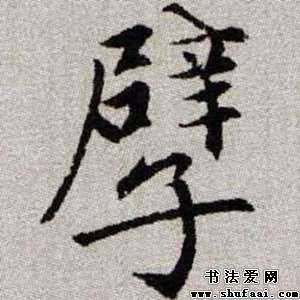 擘
书法爱网
www.shufaai.com